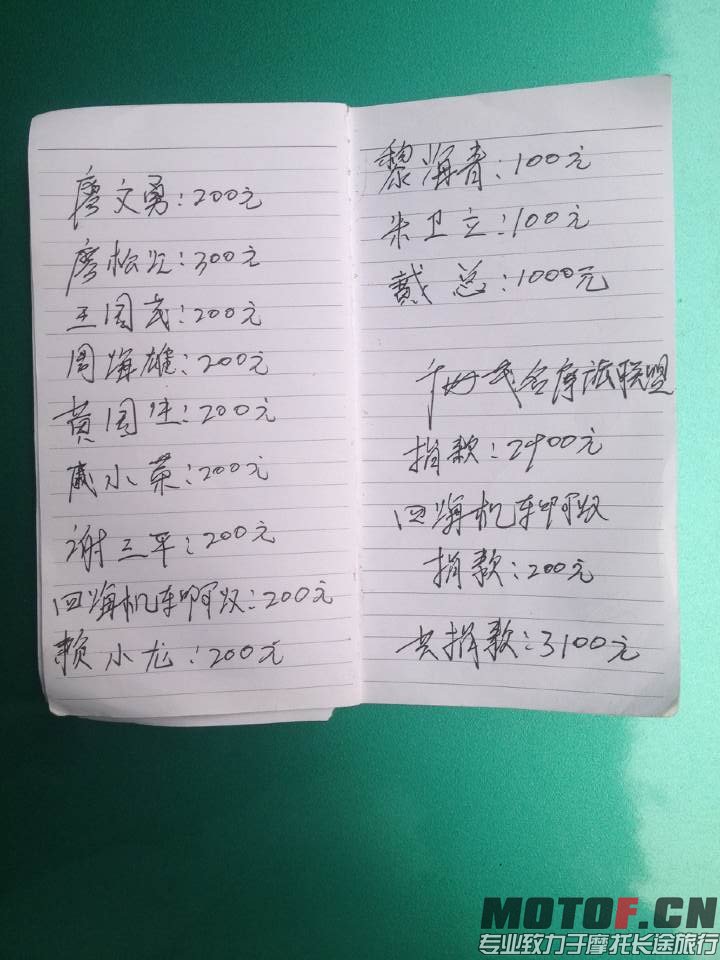 廖文勇：200元
廖松：300元
王国民：200元
周海雄：200元
黄国：200元
戚小荣：200元
谢三平：200元
四海机车阿汉：200元
赖小龙：200元
黎海青：100元
朱卫立：100元
戴总：1000元
摩旅联盟
捐款：2900元
四海机车阿汉
捐款：200元
共捐款：3100元
MOTOF.CN
专业致力于摩托长途旅行